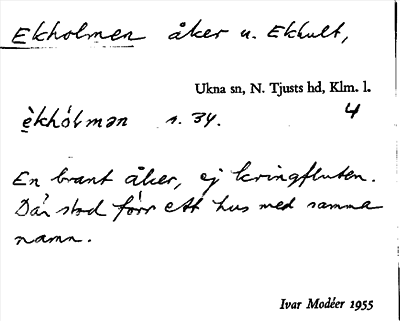 Ekholmen åker u. Ekhult,
Ukna sn, N. Tjusts hd, Klm. l.
èkhól̀mən s. 34. 4
En brant åker, ej kringfluten.
Där stod förr ett hus med samma
namn.
Ivar Modéer 1955